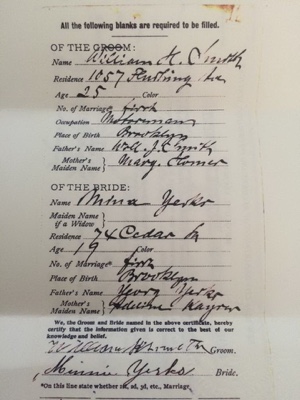 All the following blanks are required to be filled.
OF THE GROOM:
Name William H. Smith
Residence 1057 Flushing Ave
Age 25 Color
No. of Marriage* first
Occupation Motorman
Place of Birth Brooklyn
Father's Name Will. J. Smith
Mother's Maiden Name } Mary
OF THE BRIDE:
Name Mina Yerks
Maiden Name if a Widow }
Residence 74 Cedar St
Age 19 Color
No. of Marriage first
Place of Birth Brooklyn
Father's Name Georg Yerks
Mother's Maiden Name }
We, the Groom and Bride named in the above certificate, hereby
certify that the information given is correct to the best of our
knowledge and belief.
William H Smith Groom.
Minnie Yerks Bride.
*On this line state whether 1st, 2d, 3d, etc., Marriage